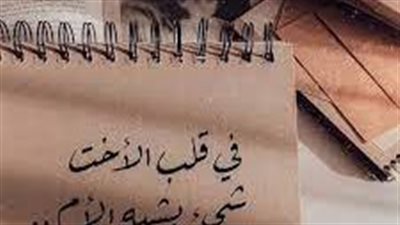 في قلب الأخت
شيء يشبه الأم ..